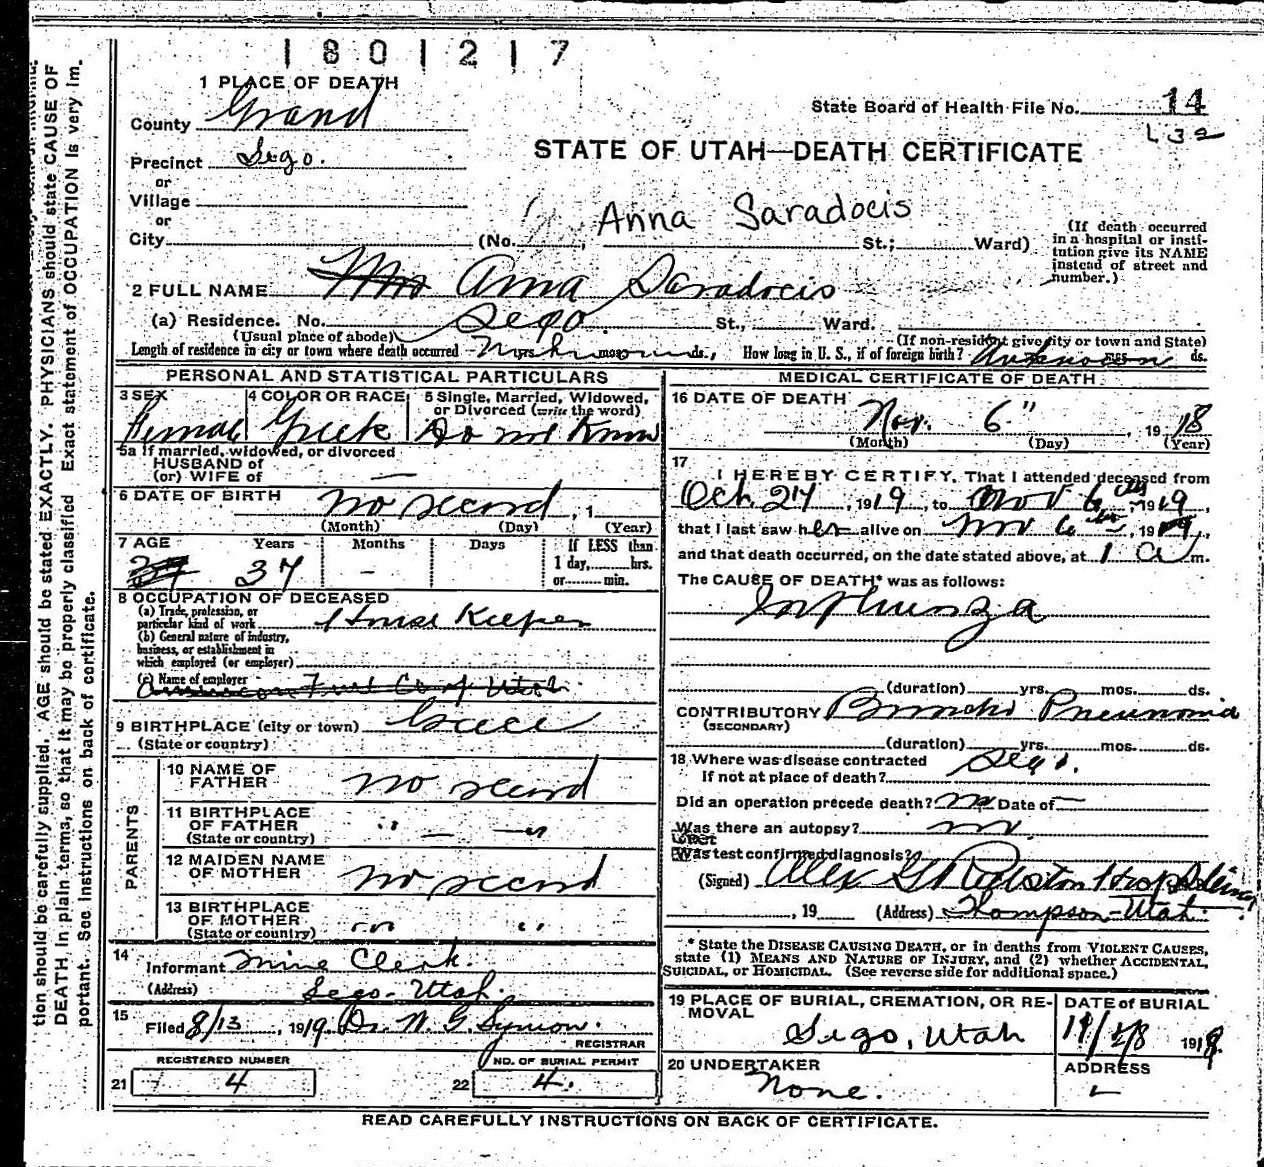 1801217
1 PLACE OF DEATH
State Board of Health File No. 14
County Grand
Precinct Sego.
STATE OF UTAH—DEATH CERTIFICATE
or
Village
or
Anna Saradocis
City (No. , St.; Ward)
(If death occurred in a hospital or institution give its NAME instead of street and number.)
2 FULL NAME Mrs Anna Saradocis
(a) Residence. No. Sego. St., Ward.
(Usual place of abode) (If non-resident give city or town and State)
Length of residence in city or town where death occurred yrs. mos. ds., How long in U. S., if of foreign birth? Unknown yrs. ds.
PERSONAL AND STATISTICAL PARTICULARS
3 SEX Female
4 COLOR OR RACE Greek
5 Single, Married, Widowed, or Divorced (write the word) Do not Know
5a If married, widowed, or divorced
HUSBAND of
(or) WIFE of —
6 DATE OF BIRTH no record , 1
(Month) (Day) (Year)
7 AGE Years Months Days If LESS than
37 – 1 day, hrs.
or min.
8 OCCUPATION OF DECEASED
(a) Trade, profession, or
particular kind of work House Keeper
(b) General nature of industry,
business, or establishment in
which employed (or employer)
(c) Name of employer American Fuel Co of Utah
9 BIRTHPLACE (city or town) Greece
(State or country)
PARENTS
10 NAME OF FATHER no record
11 BIRTHPLACE OF FATHER (State or country) " — "
12 MAIDEN NAME OF MOTHER no record
13 BIRTHPLACE OF MOTHER (State or country) " "
14 Informant Mine Clerk.
(Address) Sego- Utah.
15 Filed 8/13, 1919. Dr. W. G. Symon.
REGISTRAR
REGISTERED NUMBER NO. OF BURIAL PERMIT
21 4 22 4.
MEDICAL CERTIFICATE OF DEATH
16 DATE OF DEATH Nov. 6" , 1918
(Month) (Day) (Year)
17 I HEREBY CERTIFY, That I attended deceased from
Oct. 24, 1919, to Nov 6th, 1919,
that I last saw her alive on Nov 6th, 1919,
and that death occurred, on the date stated above, at 1 a m.
The CAUSE OF DEATH* was as follows:
Influenza
(duration) yrs. mos. ds.
CONTRIBUTORY Broncho Pneumonia
(SECONDARY)
(duration) yrs. mos. ds.
18 Where was disease contracted Sego.
if not at place of death?
Did an operation precede death? no Date of —
Was there an autopsy? no.
What
Was test confirmed diagnosis?
(Signed) Alex
, 19 (Address) Thompson-Utah.
* State the DISEASE CAUSING DEATH, or in deaths from VIOLENT CAUSES,
state (1) MEANS AND NATURE OF INJURY, and (2) whether ACCIDENTAL,
SUICIDAL, or HOMICIDAL. (See reverse side for additional space.)
19 PLACE OF BURIAL, CREMATION, OR REMOVAL Sego, Utah
DATE of BURIAL 191
20 UNDERTAKER None.
ADDRESS
READ CAREFULLY INSTRUCTIONS ON BACK OF CERTIFICATE.
tion should be carefully supplied. AGE should be stated EXACTLY. PHYSICIANS should state CAUSE OF
DEATH in plain terms, so that it may be properly classified Exact statement of OCCUPATION is very im-
portant. See instructions on back of certificate.